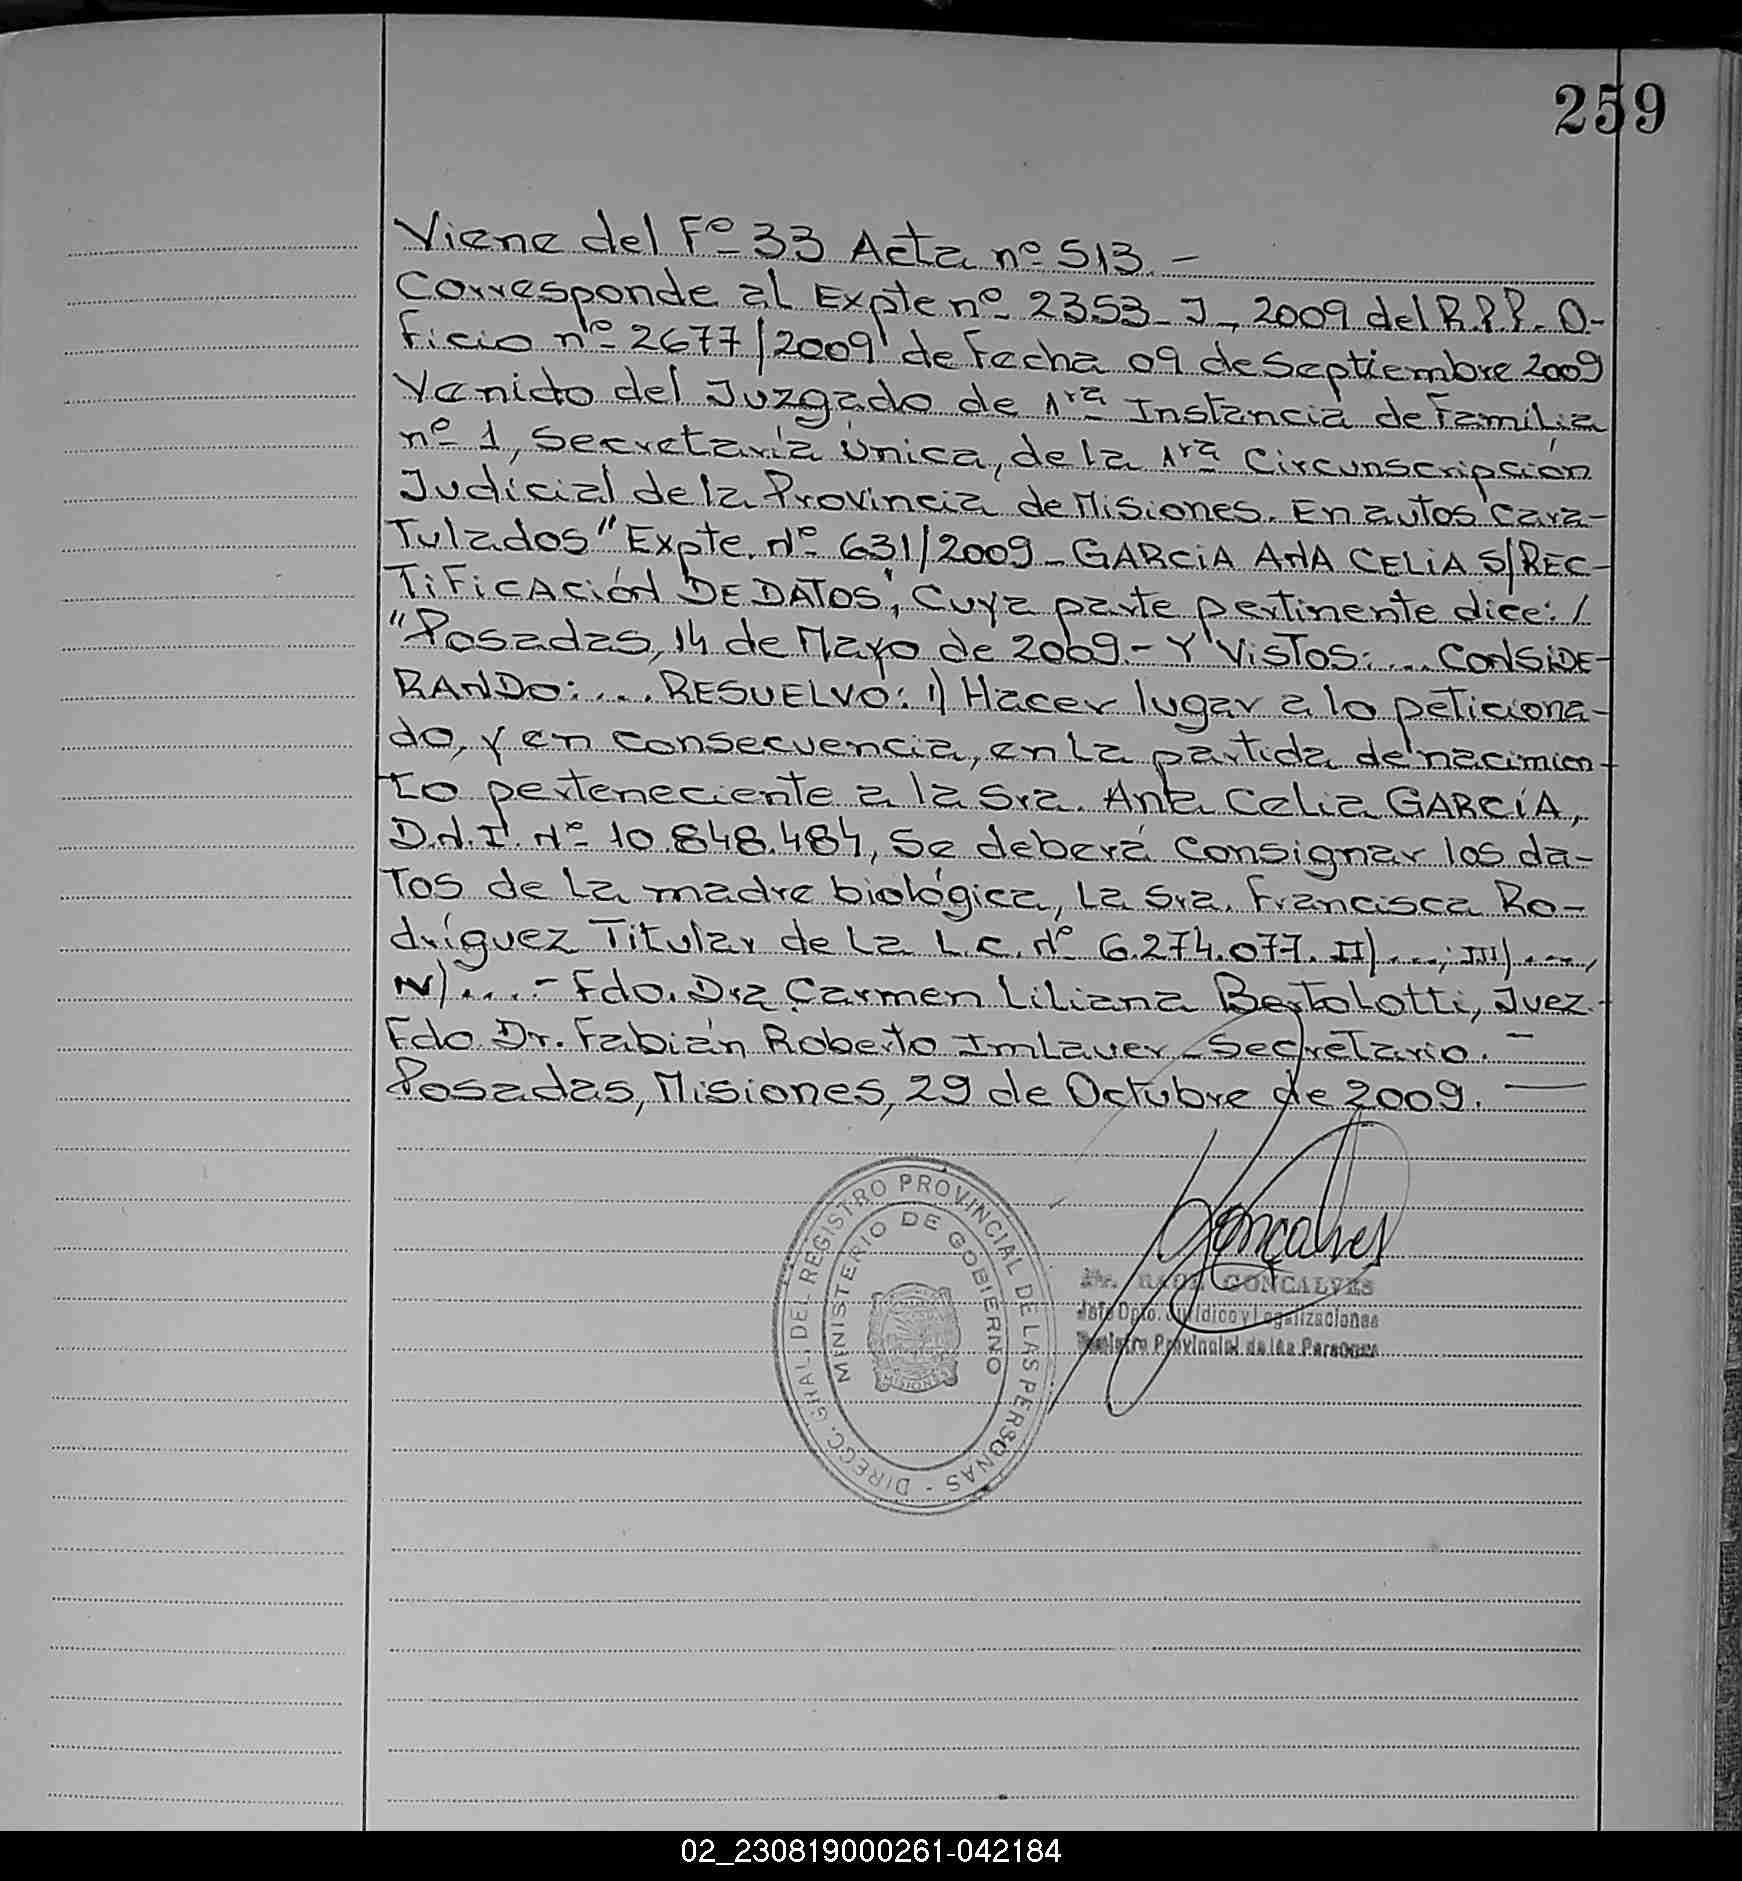 259
Viene del Fº 33 Acta nº 513. -
Corresponde al Expte nº 2353-J-, 2009 del R.P.P. O-
ficio nº 2677/2009 de fecha 09 de Septiembre 2009
Venido del Juzgado de 1ra Instancia de Familia
nº 1, Secretaría Única, de la 1ra Circunscripción
Judicial de la Provincia de Misiones. En autos cara-
tulados "Expte. Nº 631/2009 - GARCIA ANA CELIA S/REC-
TIFICACIÓN DE DATOS", cuya parte pertinente dice: /
"Posadas, 14 de Mayo de 2009.- Y VISTOS: .... CONSIDE-
RANDO: .... RESUELVO: 1) Hacer lugar a lo peticiona-
do, y en consecuencia, en la partida de nacimien-
to perteneciente a la Sra. Ana Celia GARCÍA,
D.N.I. Nº 10.848.484, se deberá consignar los da-
tos de la madre biológica, la Sra. Francisca Ro-
dríguez Titular de la L.C. Nº 6.274.077. II) ....; III) ....,
IV) .... - Fdo. Dra Carmen Liliana Bertolotti, Juez.
Fdo Dr. Fabián Roberto Imlauer - Secretario. -
Posadas, Misiones, 29 de Octubre de 2009. -
DIRECC. GRAL. DEL REGISTRO PROVINCIAL DE LAS PERSONAS -
MINISTERIO DE GOBIERNO
MISIONES
Gonçalves
Dr. RAUL GONCALVES
Jefe Dpto. Jurídico y Legalizaciones
Registro Provincial de las Personas
02_230819000261-042184